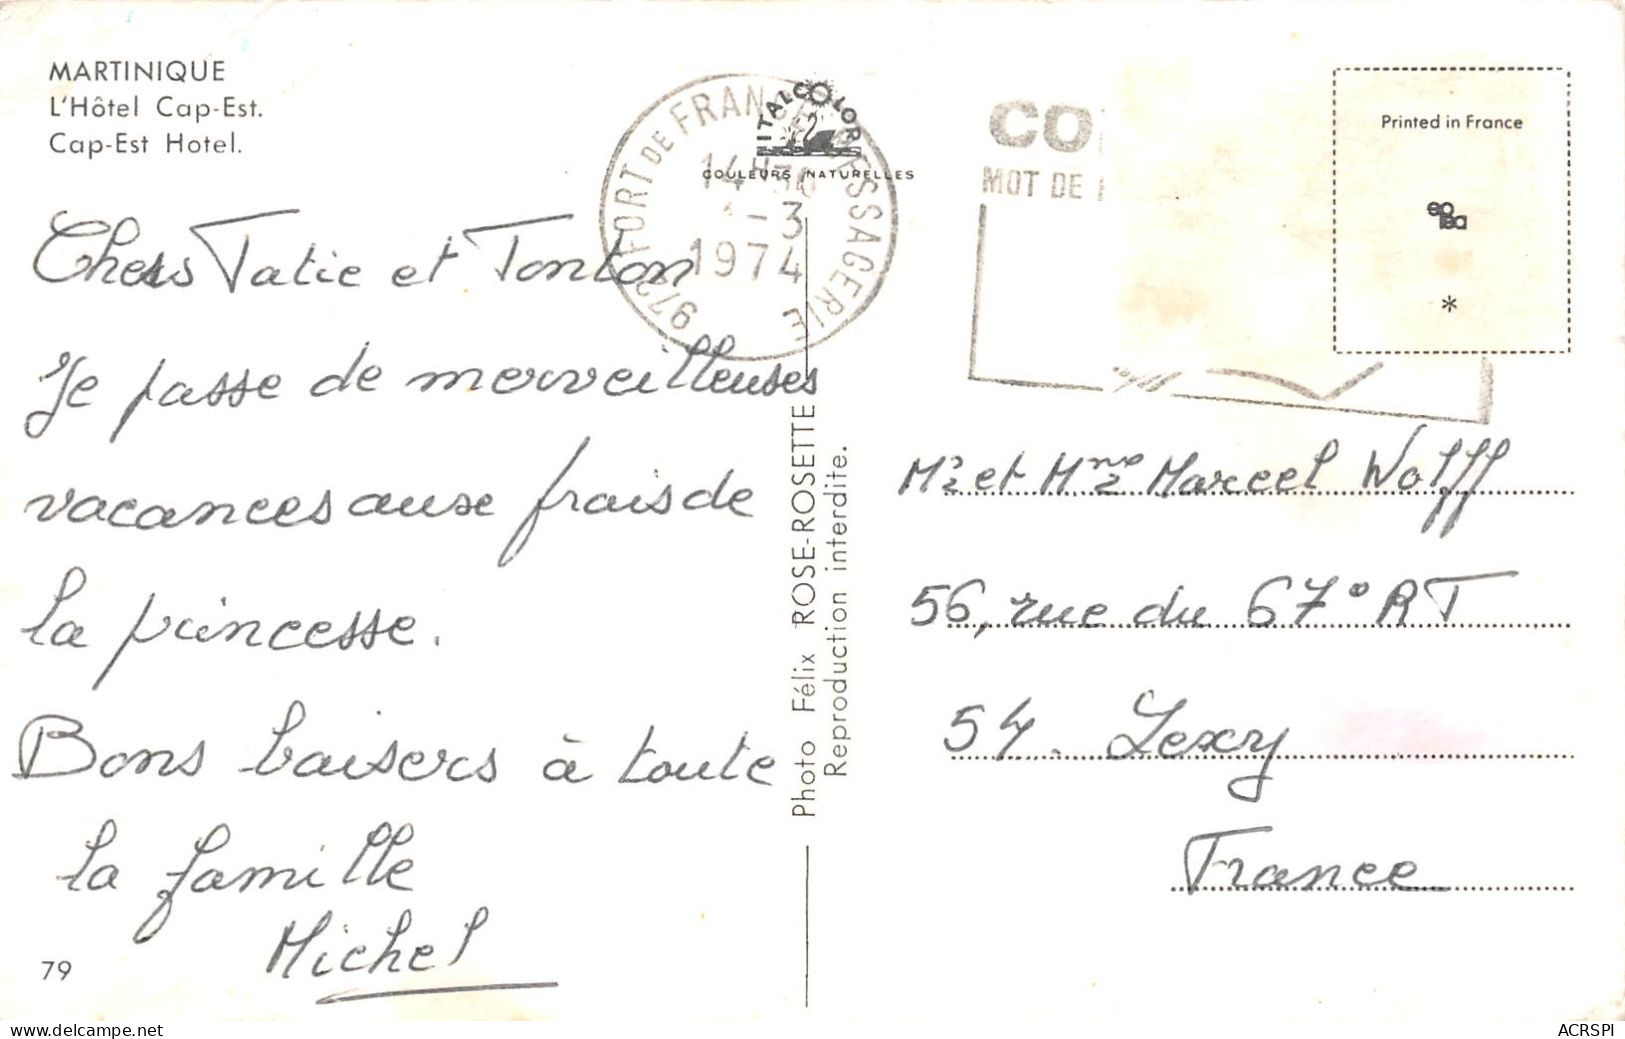 MARTINIQUE
L'Hôtel Cap-Est.
Cap-Est Hotel.
Chers Tatie et Tonton
Je passe de merveilleuses
vacances aux frais de
la princesse.
Bons baisers à toute
la famille
Michel
79
ITALCOLOR
COULEURS NATURELLES
972 FORT DE FRANCE MESSAGERIE
1974
Photo Félix ROSE-ROSETTE
Reproduction interdite.
MOT DE
Printed in France
*
Mr et Mme Marcel Wolff
56, rue du 67° RT
54. Lexy
France
www.delcampe.net
ACRSPI